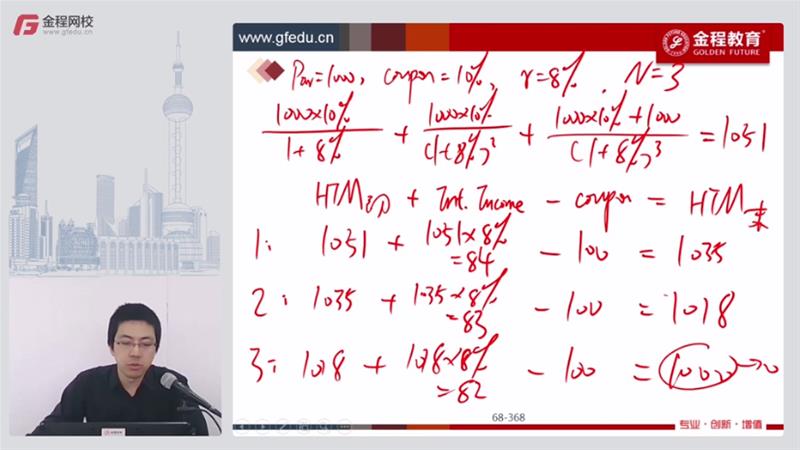 金程网校
www.gfedu.cn
www.gfedu.cn
金程教育
GOLDEN FUTURE
Par=1000, coupon=10%, r=8%, N=3
1000×10%/1+8% + 1000×10%/(1+8%)² + 1000×10%+1000/(1+8%)³ = 1051
HTM初 + Int. Income - coupon = HTM末
1: 1051 + 1051×8% =84 - 100 = 1035
2: 1035 + 1035×8% =83 - 100 = 1018
3: 1018 + 1018×8% =82 - 100 = 1000 → 0
68-368
专业·创新·增值